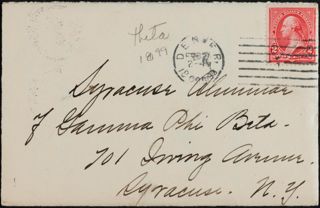 Theta
1899
DENVER
2
Syracuse Alumnae
of Gamma Phi Beta.
701 Irving Avenue.
Syracuse. N.Y.